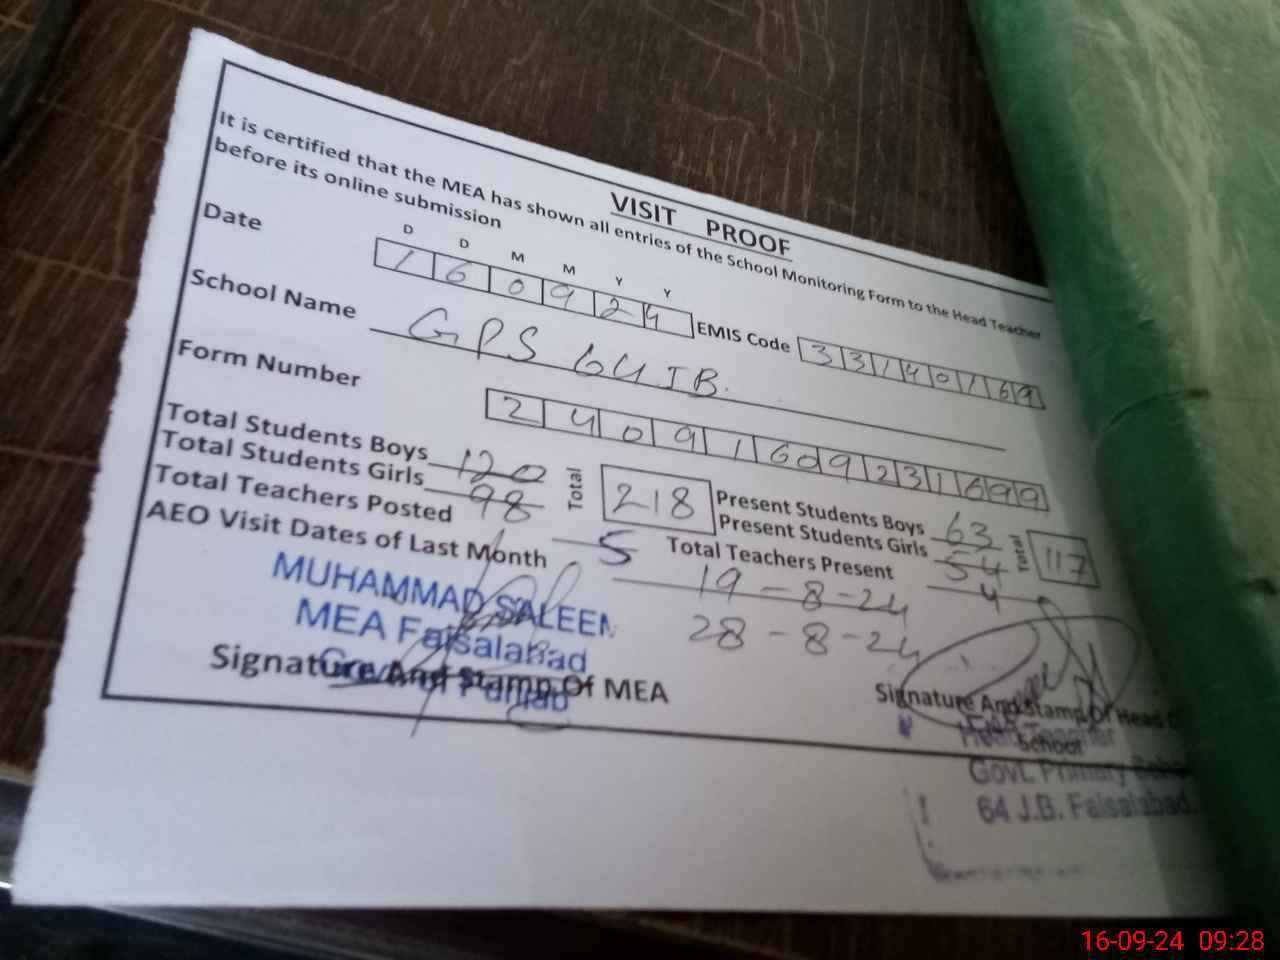 VISIT PROOF
It is certified that the MEA has shown all entries of the School Monitoring Form to the Head Teacher
before its online submission
D D M M Y Y
Date 1 6 0 9 2 4 EMIS Code 3 3 1 4 0 1 6 9
School Name GPS 64 JB.
Form Number 2 4 0 9 1 6 0 9 2 3 1 6 9 9
Total Students Boys 120 Total 218 Present Students Boys 63 Total 117
Total Students Girls 98 Present Students Girls 54
Total Teachers Posted 5 Total Teachers Present 4
AEO Visit Dates of Last Month 19-8-24
28-8-24
MUHAMMAD SALEEM
MEA Faisalabad
Govt of Punjab
Signature And Stamp Of MEA
Signature And Stamp Of Head
School
Head Teacher
Govt. Primary
64 J.B. Faisalabad.
16-09-24 09:28